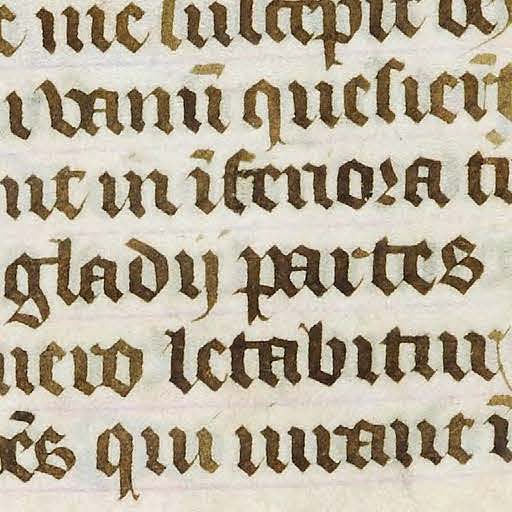 me suscepit de
vanū quesierūt
nt in īferiora
gladij partes
vero letabitur
ēs qui iurant ī